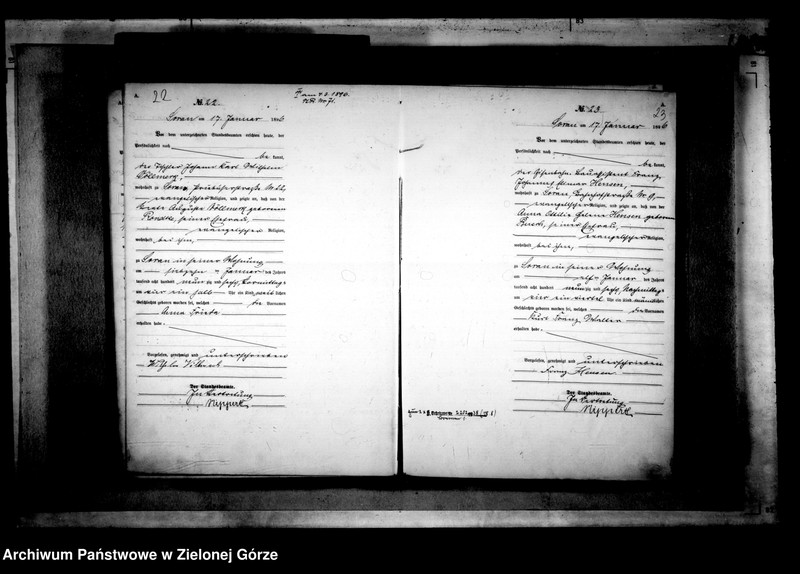 A.
22
№ 22.
Sorau am 17. Januar 1896
Vor dem unterzeichneten Standesbeamten erschien heute, der
Persönlichkeit nach
be kannt,
der Johann Karl Wilhelm
wohnhaft zu Sorau, № 22,
evangelischer Religion, und zeigte an, daß von der
Auguste geborenen
seiner Ehefrau,
evangelischer Religion,
wohnhaft bei ihm,
zu Sorau in seiner Wohnung
am siebzehn ten Januar des Jahres
tausend acht hundert neunzig und sechs Vormittags
um vier ein halb Uhr ein Kind weiblichen
Geschlechts geboren worden sei, welches die Vornamen
Anna Frieda
erhalten habe.
Vorgelesen, genehmigt und unterschrieben
Wilhelm
Der Standesbeamte.
In Vertretung
A.
23
№ 23.
Sorau am 17. Januar 1896
Vor dem unterzeichneten Standesbeamten erschien heute, der
Persönlichkeit nach
be kannt,
der Eisenbahn Franz
Johannes Hensen,
wohnhaft zu Sorau, Bahnhofstraße № 9,
evangelischer Religion, und zeigte an, daß von der
Anna Helene Hensen geborenen
seiner Ehefrau,
evangelischer Religion,
wohnhaft bei ihm,
zu Sorau in seiner Wohnung
am elf ten Januar des Jahres
tausend acht hundert neunzig und sechs Nachmittags
um vier ein viertel Uhr ein Kind männlichen
Geschlechts geboren worden sei, welches die Vornamen
Kurt Franz Walter
erhalten habe.
Vorgelesen, genehmigt und unterschrieben
Franz Hensen
Der Standesbeamte.
In Vertretung
Archiwum Państwowe w Zielonej Górze